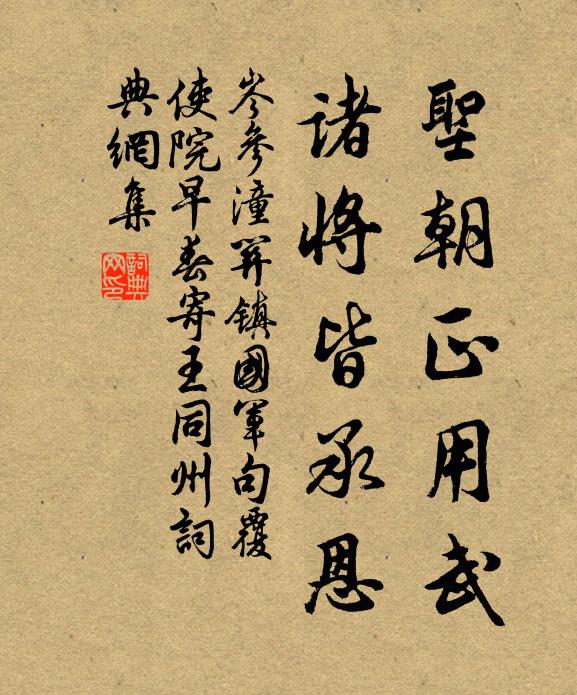 聖朝正用武
諸將皆承恩
岑參潼關鎮國軍句覆
使院早春寄王同州詞
典網集
詞典網印